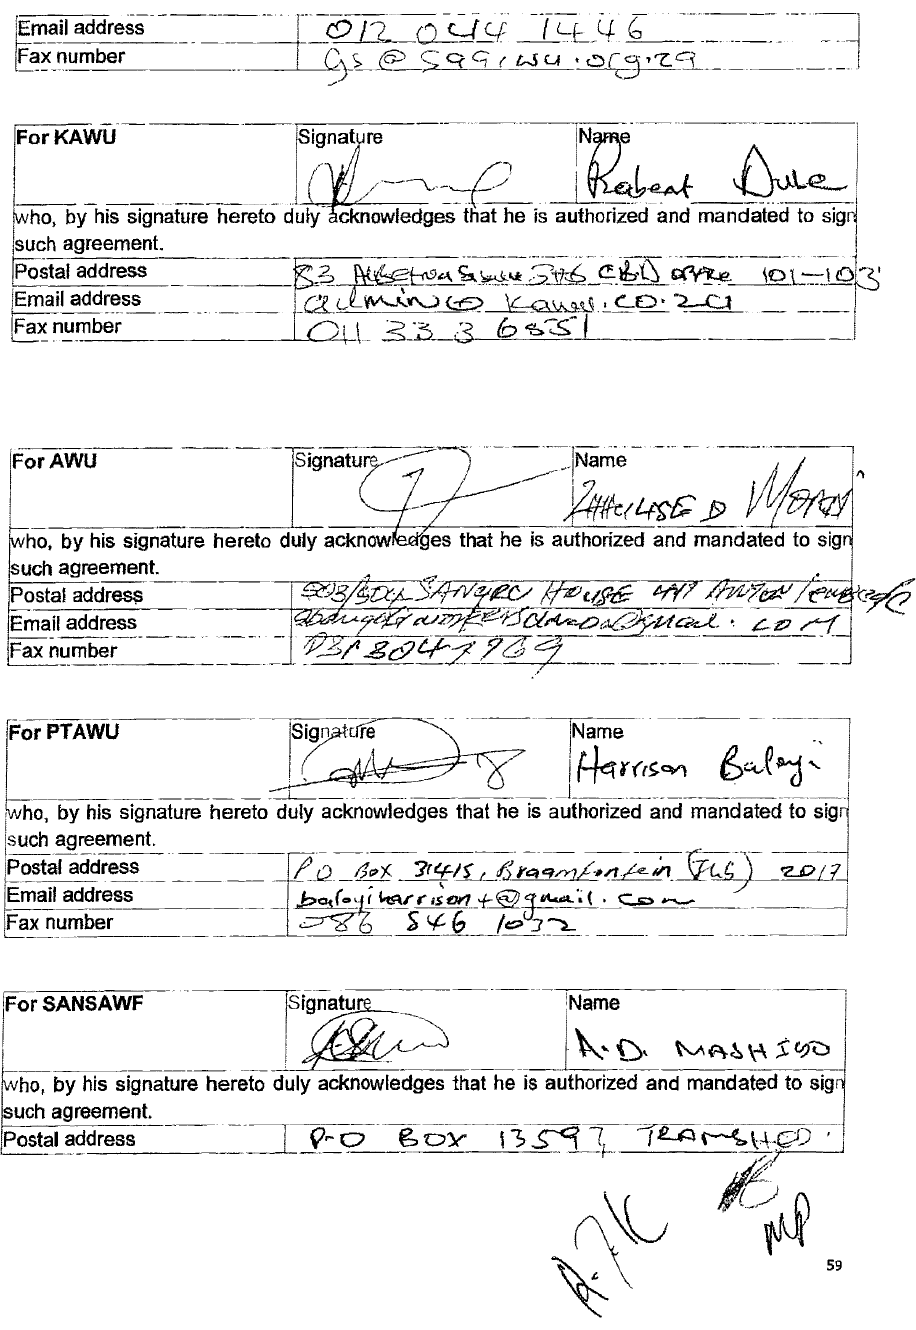 Email address 012 044 1446
Fax number gs@saqiwu.org.za
For KAWU Signature Name
Robert Dube
who, by his signature hereto duly acknowledges that he is authorized and mandated to sign
such agreement.
Postal address 83 CBD office 101-103
Email address admin@kawu.co.za
Fax number 011 333 6851
For AWU Signature Name
D
who, by his signature hereto duly acknowledges that he is authorized and mandated to sign
such agreement.
Postal address HOUSE ANTON
Email address
Fax number 0313047969
For PTAWU Signature Name
Harrison Baloyi
who, by his signature hereto duly acknowledges that he is authorized and mandated to sign
such agreement.
Postal address P O Box 31415, Braamfontein (JHB) 2017
Email address baloyiharrison+@gmail.com
Fax number 086 546 1032
For SANSAWF Signature Name
A.D. MASHIGO
who, by his signature hereto duly acknowledges that he is authorized and mandated to sign
such agreement.
Postal address P.O BOX 13597, TRAMSHED.
MP
59